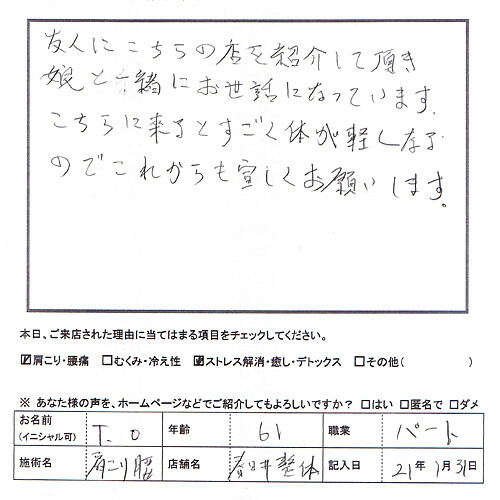 友人にこちらの店を紹介して頂き
娘と一緒にお世話になっています。
こちらに来るとすごく体が軽くなる
のでこれからも宜しくお願いします。
本日、ご来店された理由に当てはまる項目をチェックしてください。
☑肩こり・腰痛 □むくみ・冷え性 ☑ストレス解消・癒し・デトックス □その他( )
※ あなた様の声を、ホームページなどでご紹介してもよろしいですか？ □はい □匿名で □ダメ
お名前 (イニシャル可) T.O 年齢 61 職業 パート
施術名 肩こり腰 店舗名 春日井整体 記入日 21年 1月31日